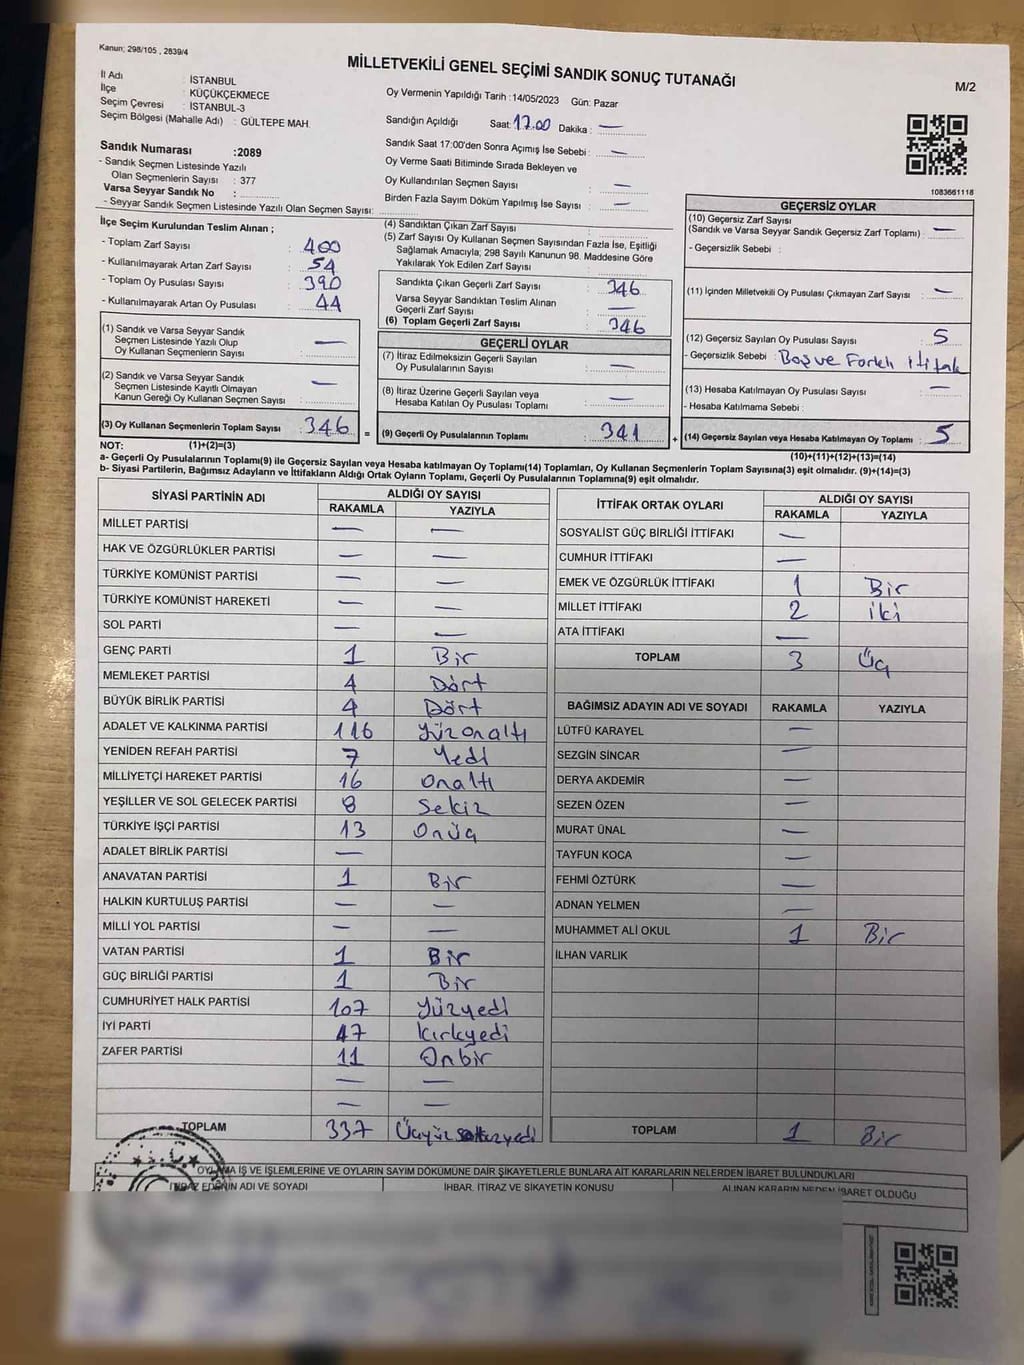 Kanun; 298/105 , 2839/4
MİLLETVEKİLİ GENEL SEÇİMİ SANDIK SONUÇ TUTANAĞI
M/2
İl Adı : İSTANBUL
İlçe : KÜÇÜKÇEKMECE
Seçim Çevresi : İSTANBUL-3
Seçim Bölgesi (Mahalle Adı) : GÜLTEPE MAH.
Oy Vermenin Yapıldığı Tarih :14/05/2023 Gün: Pazar
Sandığın Açıldığı Saat: 17.00 Dakika : —
Sandık Saat 17:00'den Sonra Açımış İse Sebebi : —
Oy Verme Saati Bitiminde Sırada Bekleyen ve
Oy Kullandırılan Seçmen Sayısı : —
Birden Fazla Sayım Döküm Yapılmış İse Sayısı : —
Sandık Numarası :2089
- Sandık Seçmen Listesinde Yazılı
Olan Seçmenlerin Sayısı : 377
Varsa Seyyar Sandık No :
- Seyyar Sandık Seçmen Listesinde Yazılı Olan Seçmen Sayısı:
1083661118
İlçe Seçim Kurulundan Teslim Alınan ;
- Toplam Zarf Sayısı : 400
- Kullanılmayarak Artan Zarf Sayısı : 54
- Toplam Oy Pusulası Sayısı : 390
- Kullanılmayarak Artan Oy Pusulası : 44
(1) Sandık ve Varsa Seyyar Sandık
Seçmen Listesinde Yazılı Olup
Oy Kullanan Seçmenlerin Sayısı : —
(2) Sandık ve Varsa Seyyar Sandık
Seçmen Listesinde Kayıtlı Olmayan
Kanun Gereği Oy Kullanan Seçmen Sayısı : —
(3) Oy Kullanan Seçmenlerin Toplam Sayısı : 346
(4) Sandıktan Çıkan Zarf Sayısı :
(5) Zarf Sayısı Oy Kullanan Seçmen Sayısından Fazla İse, Eşitliği
Sağlamak Amacıyla; 298 Sayılı Kanunun 98. Maddesine Göre
Yakılarak Yok Edilen Zarf Sayısı :
Sandıkta Çıkan Geçerli Zarf Sayısı : 346
Varsa Seyyar Sandıktan Teslim Alınan
Geçerli Zarf Sayısı : —
(6) Toplam Geçerli Zarf Sayısı : 346
GEÇERLİ OYLAR
(7) İtiraz Edilmeksizin Geçerli Sayılan
Oy Pusulalarının Sayısı : —
(8) İtiraz Üzerine Geçerli Sayılan veya
Hesaba Katılan Oy Pusulası Toplamı : —
= (9) Geçerli Oy Pusulalarının Toplamı : 341
GEÇERSİZ OYLAR
(10) Geçersiz Zarf Sayısı
(Sandık ve Varsa Seyyar Sandık Geçersiz Zarf Toplamı) : —
- Geçersizlik Sebebi :
(11) İçinden Milletvekili Oy Pusulası Çıkmayan Zarf Sayısı : —
(12) Geçersiz Sayılan Oy Pusulası Sayısı : 5
- Geçersizlik Sebebi : Boş ve Farklı ittifak
(13) Hesaba Katılmayan Oy Pusulası Sayısı : —
- Hesaba Katılmama Sebebi :
+ (14) Geçersiz Sayılan veya Hesaba Katılmayan Oy Toplamı : 5
NOT: (1)+(2)=(3) (10)+(11)+(12)+(13)=(14)
a- Geçerli Oy Pusulalarının Toplamı(9) ile Geçersiz Sayılan veya Hesaba katılmayan Oy Toplamı(14) Toplamları, Oy Kullanan Seçmenlerin Toplam Sayısına(3) eşit olmalıdır. (9)+(14)=(3)
b- Siyasi Partilerin, Bağımsız Adayların ve İttifakların Aldığı Ortak Oyların Toplamı, Geçerli Oy Pusulalarının Toplamına(9) eşit olmalıdır.
SİYASİ PARTİNİN ADI ALDIĞI OY SAYISI
RAKAMLA YAZIYLA
MİLLET PARTİSİ — —
HAK VE ÖZGÜRLÜKLER PARTİSİ — —
TÜRKİYE KOMÜNİST PARTİSİ — —
TÜRKİYE KOMÜNİST HAREKETİ — —
SOL PARTİ — —
GENÇ PARTİ 1 Bir
MEMLEKET PARTİSİ 4 Dört
BÜYÜK BİRLİK PARTİSİ 4 Dört
ADALET VE KALKINMA PARTİSİ 116 Yüzonaltı
YENİDEN REFAH PARTİSİ 7 Yedi
MİLLİYETÇİ HAREKET PARTİSİ 16 onaltı
YEŞİLLER VE SOL GELECEK PARTİSİ 8 Sekiz
TÜRKİYE İŞÇİ PARTİSİ 13 Onüç
ADALET BİRLİK PARTİSİ —
ANAVATAN PARTİSİ 1 Bir
HALKIN KURTULUŞ PARTİSİ — —
MİLLİ YOL PARTİSİ — —
VATAN PARTİSİ 1 Bir
GÜÇ BİRLİĞİ PARTİSİ 1 Bir
CUMHURİYET HALK PARTİSİ 107 Yüzyedi
İYİ PARTİ 47 Kırkyedi
ZAFER PARTİSİ 11 Onbir
— —
— —
TOPLAM 337 Üçyüz
İTTİFAK ORTAK OYLARI ALDIĞI OY SAYISI
RAKAMLA YAZIYLA
SOSYALİST GÜÇ BİRLİĞİ İTTİFAKI —
CUMHUR İTTİFAKI —
EMEK VE ÖZGÜRLÜK İTTİFAKI 1 Bir
MİLLET İTTİFAKI 2 iki
ATA İTTİFAKI —
TOPLAM 3 Üç
BAĞIMSIZ ADAYIN ADI VE SOYADI RAKAMLA YAZIYLA
LÜTFÜ KARAYEL —
SEZGİN SİNCAR —
DERYA AKDEMİR —
SEZEN ÖZEN —
MURAT ÜNAL —
TAYFUN KOCA —
FEHMİ ÖZTÜRK —
ADNAN YELMEN —
MUHAMMET ALİ OKUL 1 Bir
İLHAN VARLIK
TOPLAM 1 Bir
OYLAMA İŞ VE İŞLEMLERİNE VE OYLARIN SAYIM DÖKÜMÜNE DAİR ŞİKAYETLERLE BUNLARA AİT KARARLARIN NELERDEN İBARET BULUNDUKLARI
İTİRAZ EDENİN ADI VE SOYADI İHBAR, İTİRAZ VE ŞİKAYETİN KONUSU ALINAN KARARIN NEDEN İBARET OLDUĞU